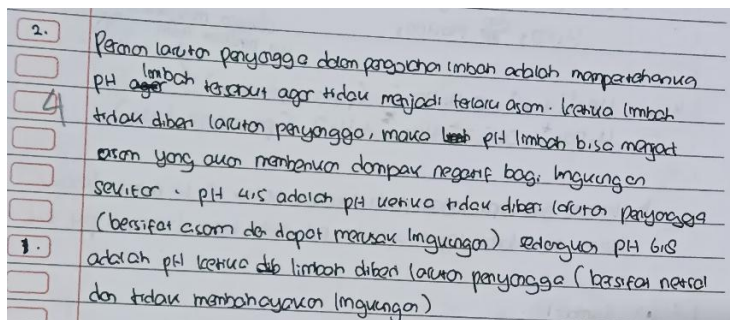 2.
Peranan larutan penyangga dalam pengolahan limbah adalah mempertahankan
pH limbah tersebut agar tidak menjadi terlalu asam. Ketika limbah
4
tidak diberi larutan penyangga, maka pH limbah bisa menjadi
asam yang akan memberikan dampak negatif bagi lingkungan
sekitar. pH 4,5 adalah pH ketika tidak diberi larutan penyangga
(bersifat asam dan dapat merusak lingkungan) sedangkan pH 6,8
1.
adalah pH ketika limbah diberi larutan penyangga (bersifat netral
dan tidak membahayakan lingkungan)